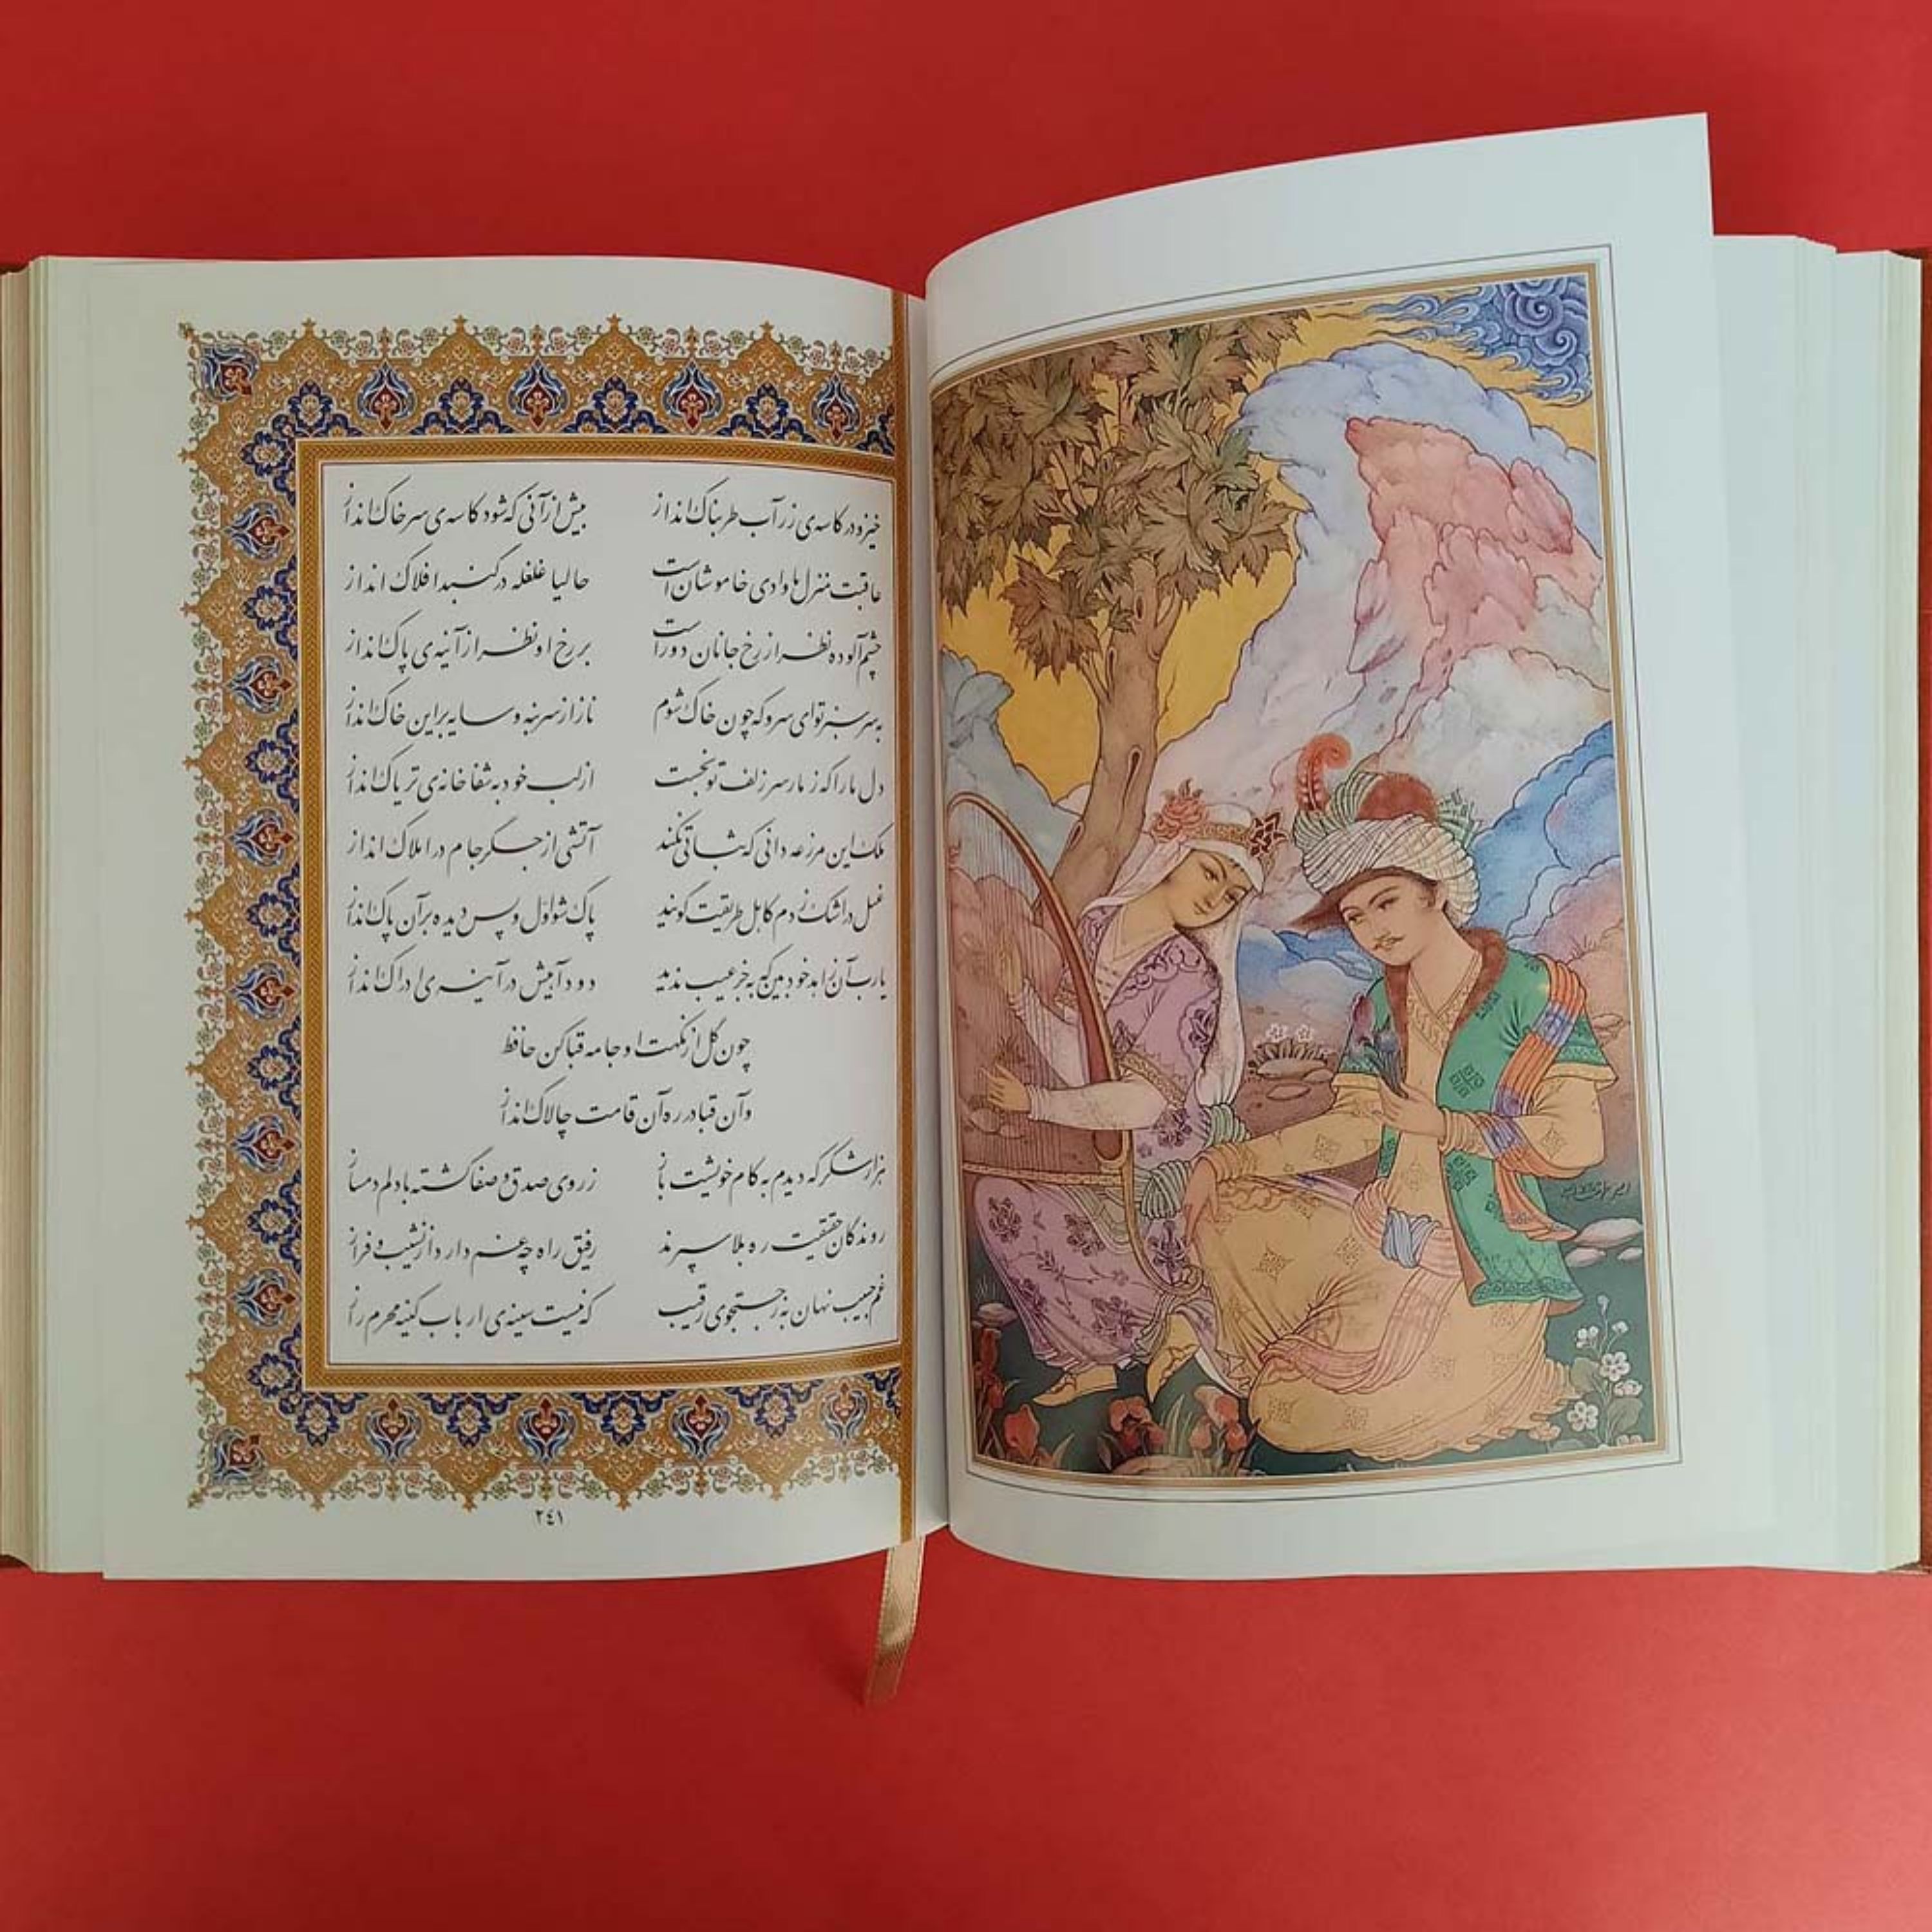 خیز و در کاسه‌ی زر آب طربناک انداز پیش از آنی که شود کاسه‌ی سر خاک انداز
عاقبت منزل ما وادی خاموشان است حالیا غلغله در گنبد افلاک انداز
چشم آلوده نظر از رخ جانان دور است بر رخ او نظر از آینه‌ی پاک انداز
به سر سبز تو ای سرو که چون خاک شوم ناز از سر بنه و سایه بر این خاک انداز
دل ما را که ز مار سر زلف تو بخست از لب خود به شفاخانه‌ی تریاک انداز
ملک این مزرعه دانی که ثباتی نکند آتشی از جگر جام در املاک انداز
غسل در اشک زدم کاهل طریقت گویند پاک شو اول و پس دیده بر آن پاک انداز
یارب آن زاهد خودبین که به جز عیب ندید دود آهیش در آینه‌ی ادراک انداز
چون گل از نکهت او جامه قبا کن حافظ
وآن قبا در ره آن قامت چالاک انداز
هزار شکر که دیدم به کام خویشت باز ز روی صدق و صفا گشته با دلم دمساز
روندگان حقیقت ره بلا سپرند رفیق راه چه غم دارد از نشیب و فراز
غم حبیب نهان به ز جستجوی رقیب که نیست سینه‌ی ارباب کینه محرم راز
٢٤١